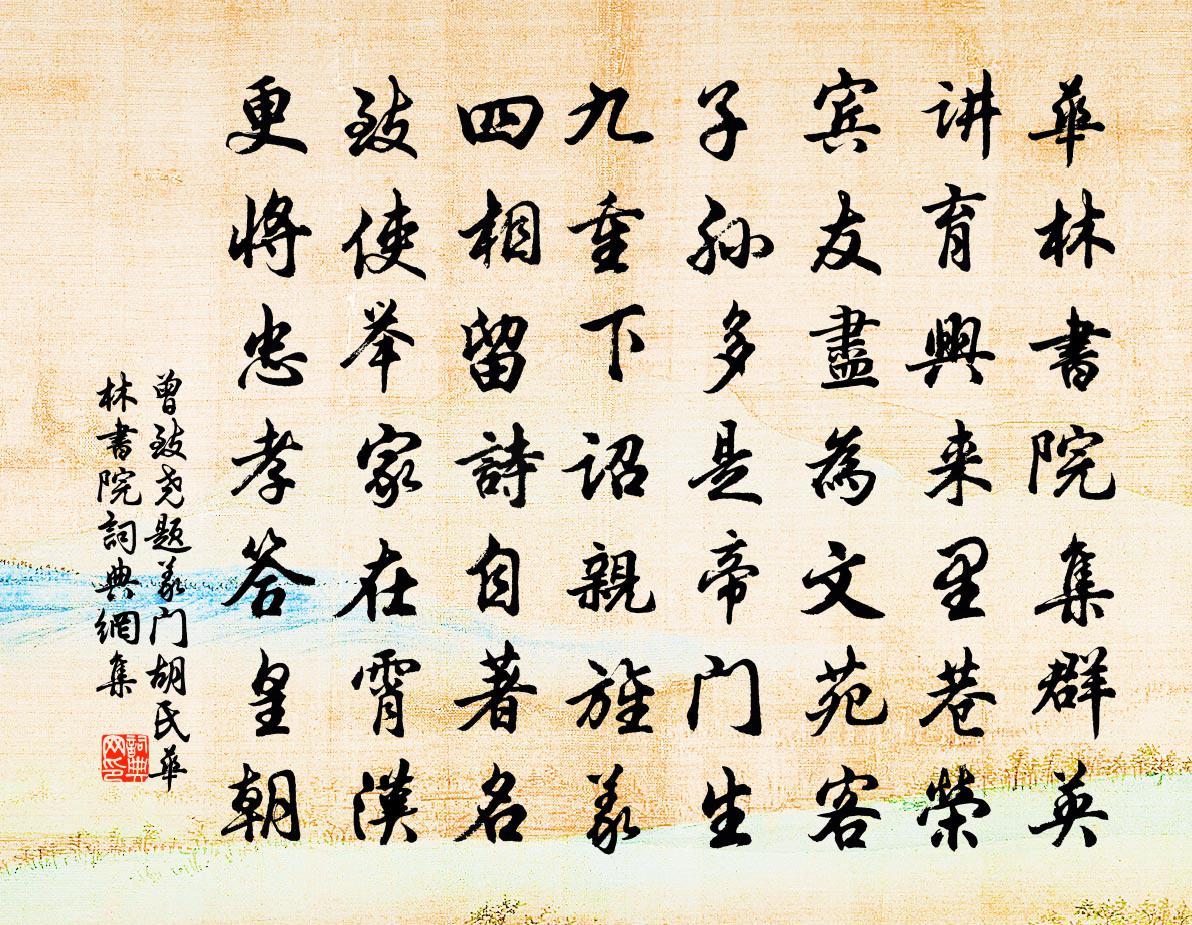 華林書院集群英
讲育興来里巷榮
宾友盡為文苑客
子孙多是帝门生
九重下詔親旌義
四相留詩自著名
致使举家在霄漢
更将忠孝答皇朝
曾致尧题義门胡民華
林書院詞典網集
詞典网印